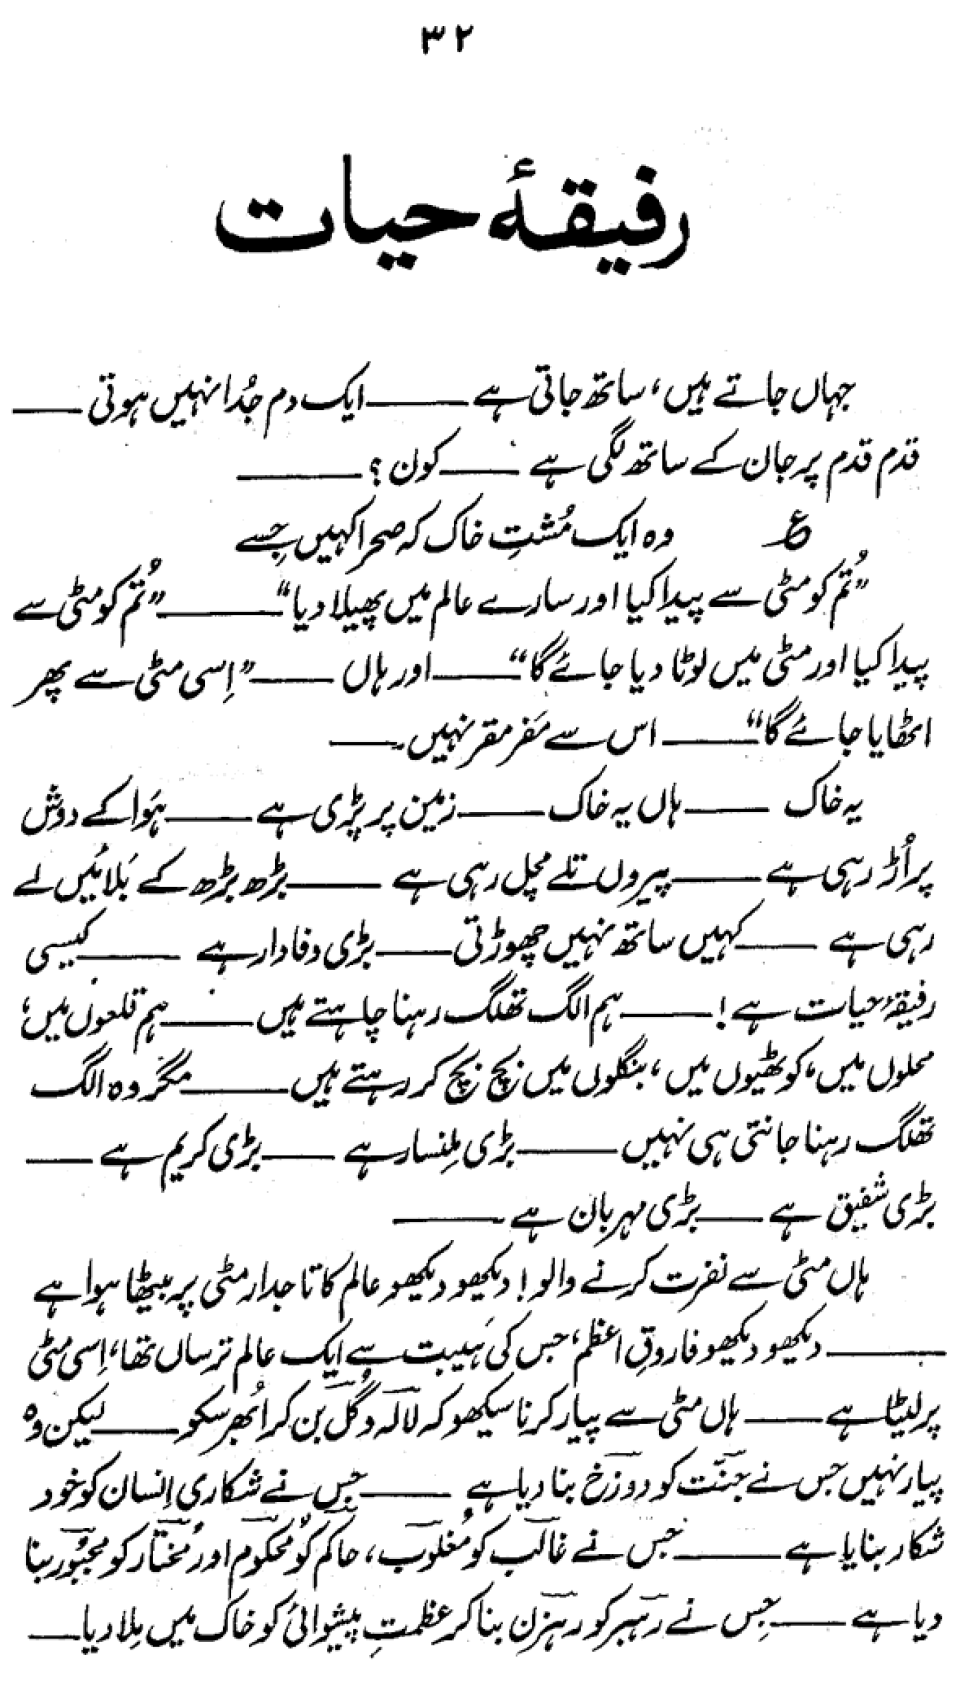 ۳۲
رفیقۂ حیات
جہاں جاتے ہیں، ساتھ جاتی ہے ——— ایک دم جُدا نہیں ہوتی ———
قدم قدم پر جان کے ساتھ لگی ہے ——— کون ؟ ———
ع وہ ایک مُشتِ خاک کہ صحرا کہیں جِسے
”تُم کو مٹی سے پیدا کیا اور سارے عالم میں پھیلا دیا“ ——— ”تُم کو مٹی سے
پیدا کیا اور مٹی میں لوٹا دیا جائے گا“ ——— اور ہاں ——— ”اِسی مٹی سے پھر
اٹھایا جائے گا“ ——— اس سے مَفر مقر نہیں۔ ———
یہ خاک ——— ہاں یہ خاک ——— زمین پر پڑی ہے ——— ہَوا کے دوش
پر اُڑ رہی ہے ——— پیروں تلے مچل رہی ہے ——— بڑھ بڑھ کے بَلائیں لے
رہی ہے ——— کہیں ساتھ نہیں چھوڑتی ——— بڑی وفادار ہے ——— کیسی
رفیقۂ حیات ہے ! ——— ہم الگ تھلگ رہنا چاہتے ہیں ——— ہم قلعوں میں،
محلوں میں، کوٹھیوں میں، بنگلوں میں بچ بچ کر رہتے ہیں ——— مگر وہ الگ
تھلگ رہنا جانتی ہی نہیں ——— بڑی مِلنسار ہے ——— بڑی کریم ہے ———
بڑی شفیق ہے ——— بڑی مہربان ہے۔ ———
ہاں مٹی سے نفرت کرنے والو ! دیکھو دیکھو عالم کا تاجدار مٹی پر بیٹھا ہوا ہے
——— دیکھو دیکھو فاروقِ اعظم، جس کی ہَیبت سے ایک عالم ترساں تھا، اِسی مٹی
پر لیٹا ہے ——— ہاں مٹی سے پیار کرنا سیکھو کہ لالہ و گُل بن کر اُبھر سکو ——— لیکن وہ
پیار نہیں جس نے جنّت کو دوزخ بنا دیا ہے ——— جس نے شکاری اِنسان کو خود
شکار بنایا ہے ——— جس نے غالب کو مُغلوب، حاکم کو محکوم اور مُختار کو مجبُور بنا
دیا ہے ——— جِس نے رہبر کو رہزن بنا کر عظمتِ پیشوائی کو خاک میں مِلا دیا ———